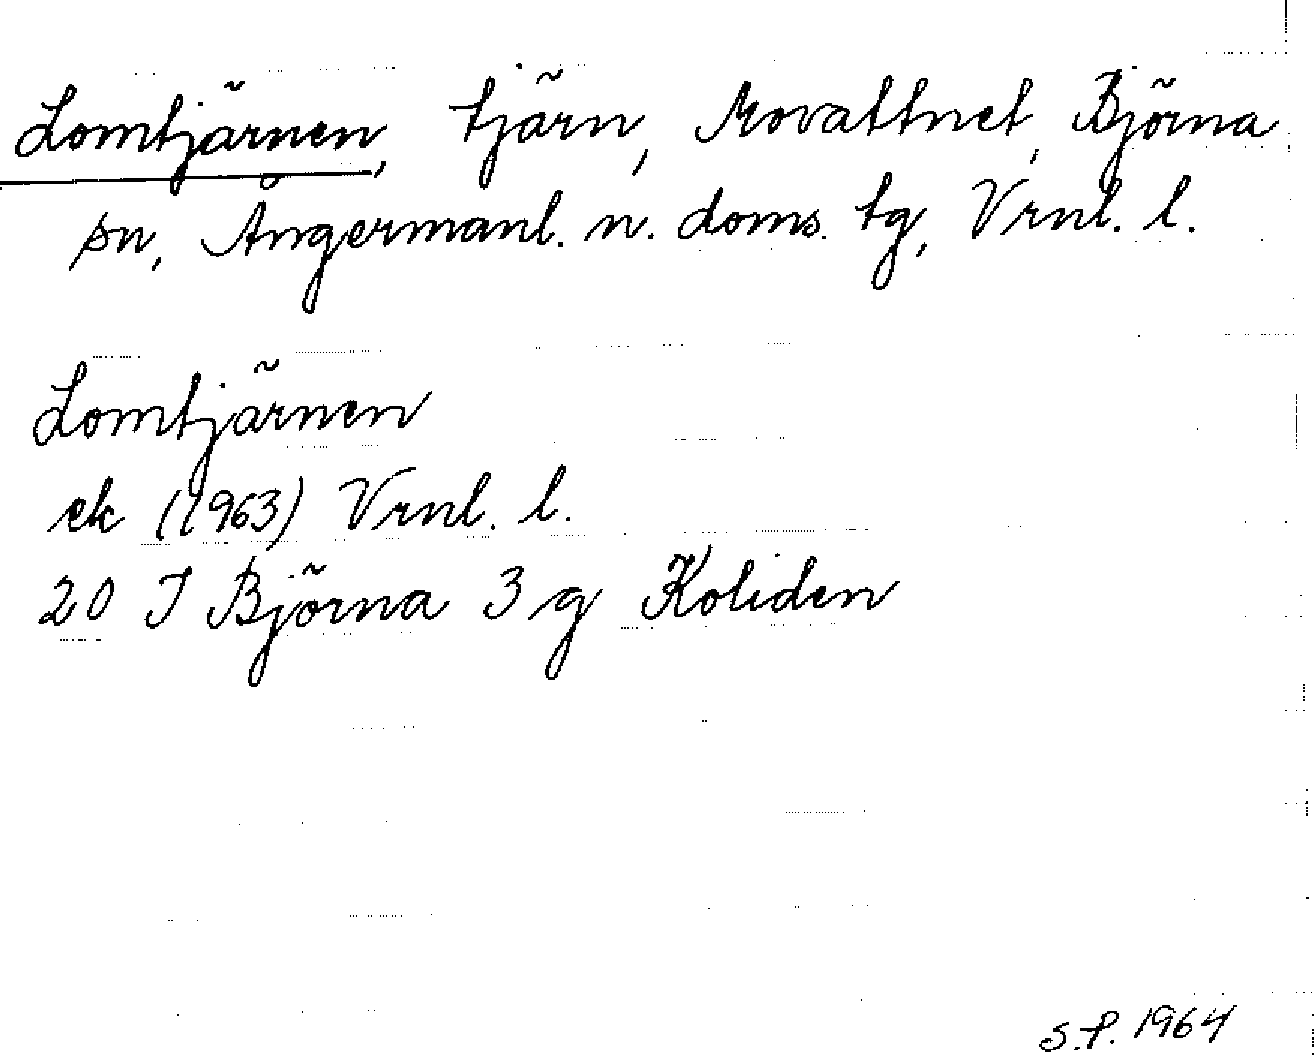 Lomtjärnen, tjärn, Movattnet, Björna
sn, Ångermanl. n. doms. tg, Vrnl. l.
Lomtjärnen
ek (1963) Vrnl. l.
20 I Björna 3 g Koliden
S.P. 1964